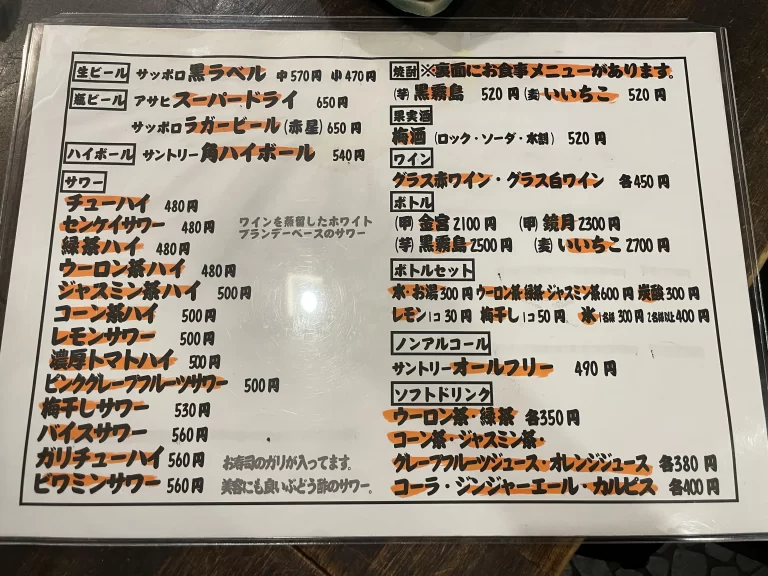 生ビール サッポロ黒ラベル 中570円 小470円
瓶ビール アサヒスーパードライ 650円
サッポロラガービール(赤星)650円
ハイボール サントリー角ハイボール 540円
サワー
チューハイ 480円
センケイサワー 480円 ワインを蒸留したホワイト
ブランデーベースのサワー
緑茶ハイ 480円
ウーロン茶ハイ 480円
ジャスミン茶ハイ 500円
コーン茶ハイ 500円
レモンサワー 500円
濃厚トマトハイ 500円
ピンクグレープフルーツサワー 500円
梅干しサワー 530円
バイスサワー 560円
ガリチューハイ 560円 お寿司のガリが入ってます。
ビワミンサワー 560円 美容にも良いぶどう酢のサワー。
焼酎 ※裏面にお食事メニューがあります。
(芋)黒霧島 520円 (麦)いいちこ 520円
果実酒
梅酒(ロック・ソーダ・水割) 520円
ワイン
グラス赤ワイン・グラス白ワイン 各450円
ボトル
(甲)金宮2100円 (甲)鏡月2300円
(芋)黒霧島2500円 (麦)いいちこ2700円
ボトルセット
水・お湯300円 ウーロン茶・緑茶・ジャスミン茶600円 炭酸300円
レモン1コ30円 梅干し1コ50円 氷1名様300円 2名様以上400円
ノンアルコール
サントリーオールフリー 490円
ソフトドリンク
ウーロン茶・緑茶 各350円
コーン茶・ジャスミン茶・
グレープフルーツジュース・オレンジジュース 各380円
コーラ・ジンジャーエール・カルピス 各400円